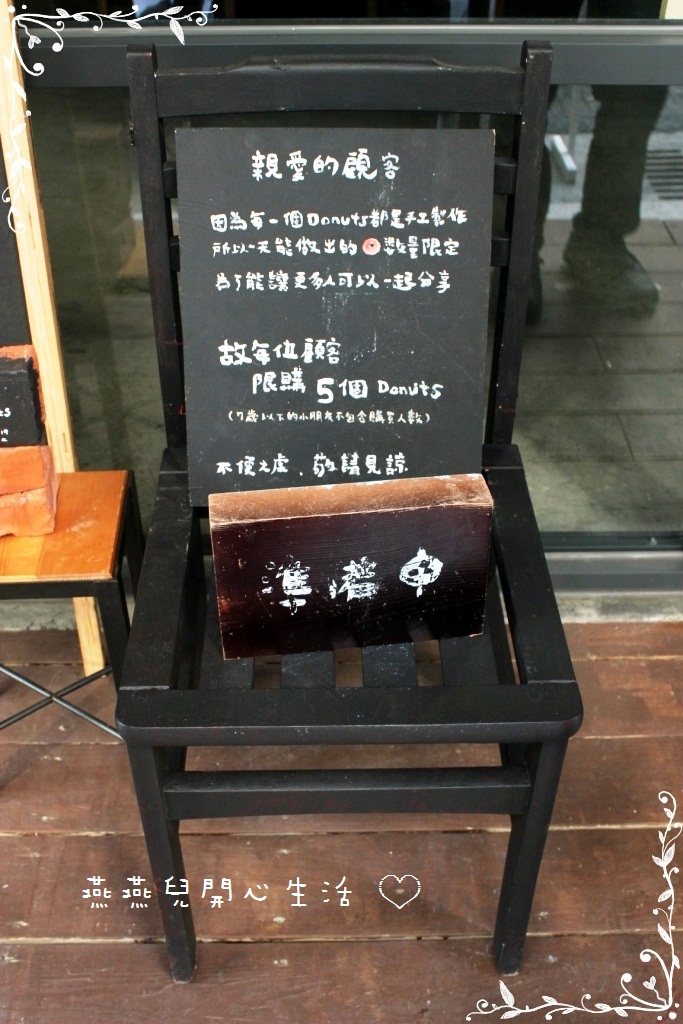 親愛的顧客
因為每一個Donuts都是手工製作
所以一天能做出的數量限定
為了能讓更多人可以一起分享
故每位顧客
限購5個Donuts
(7歲以下的小朋友不包含購買人數)
不便之處、敬請見諒
準備中
燕燕兒開心生活